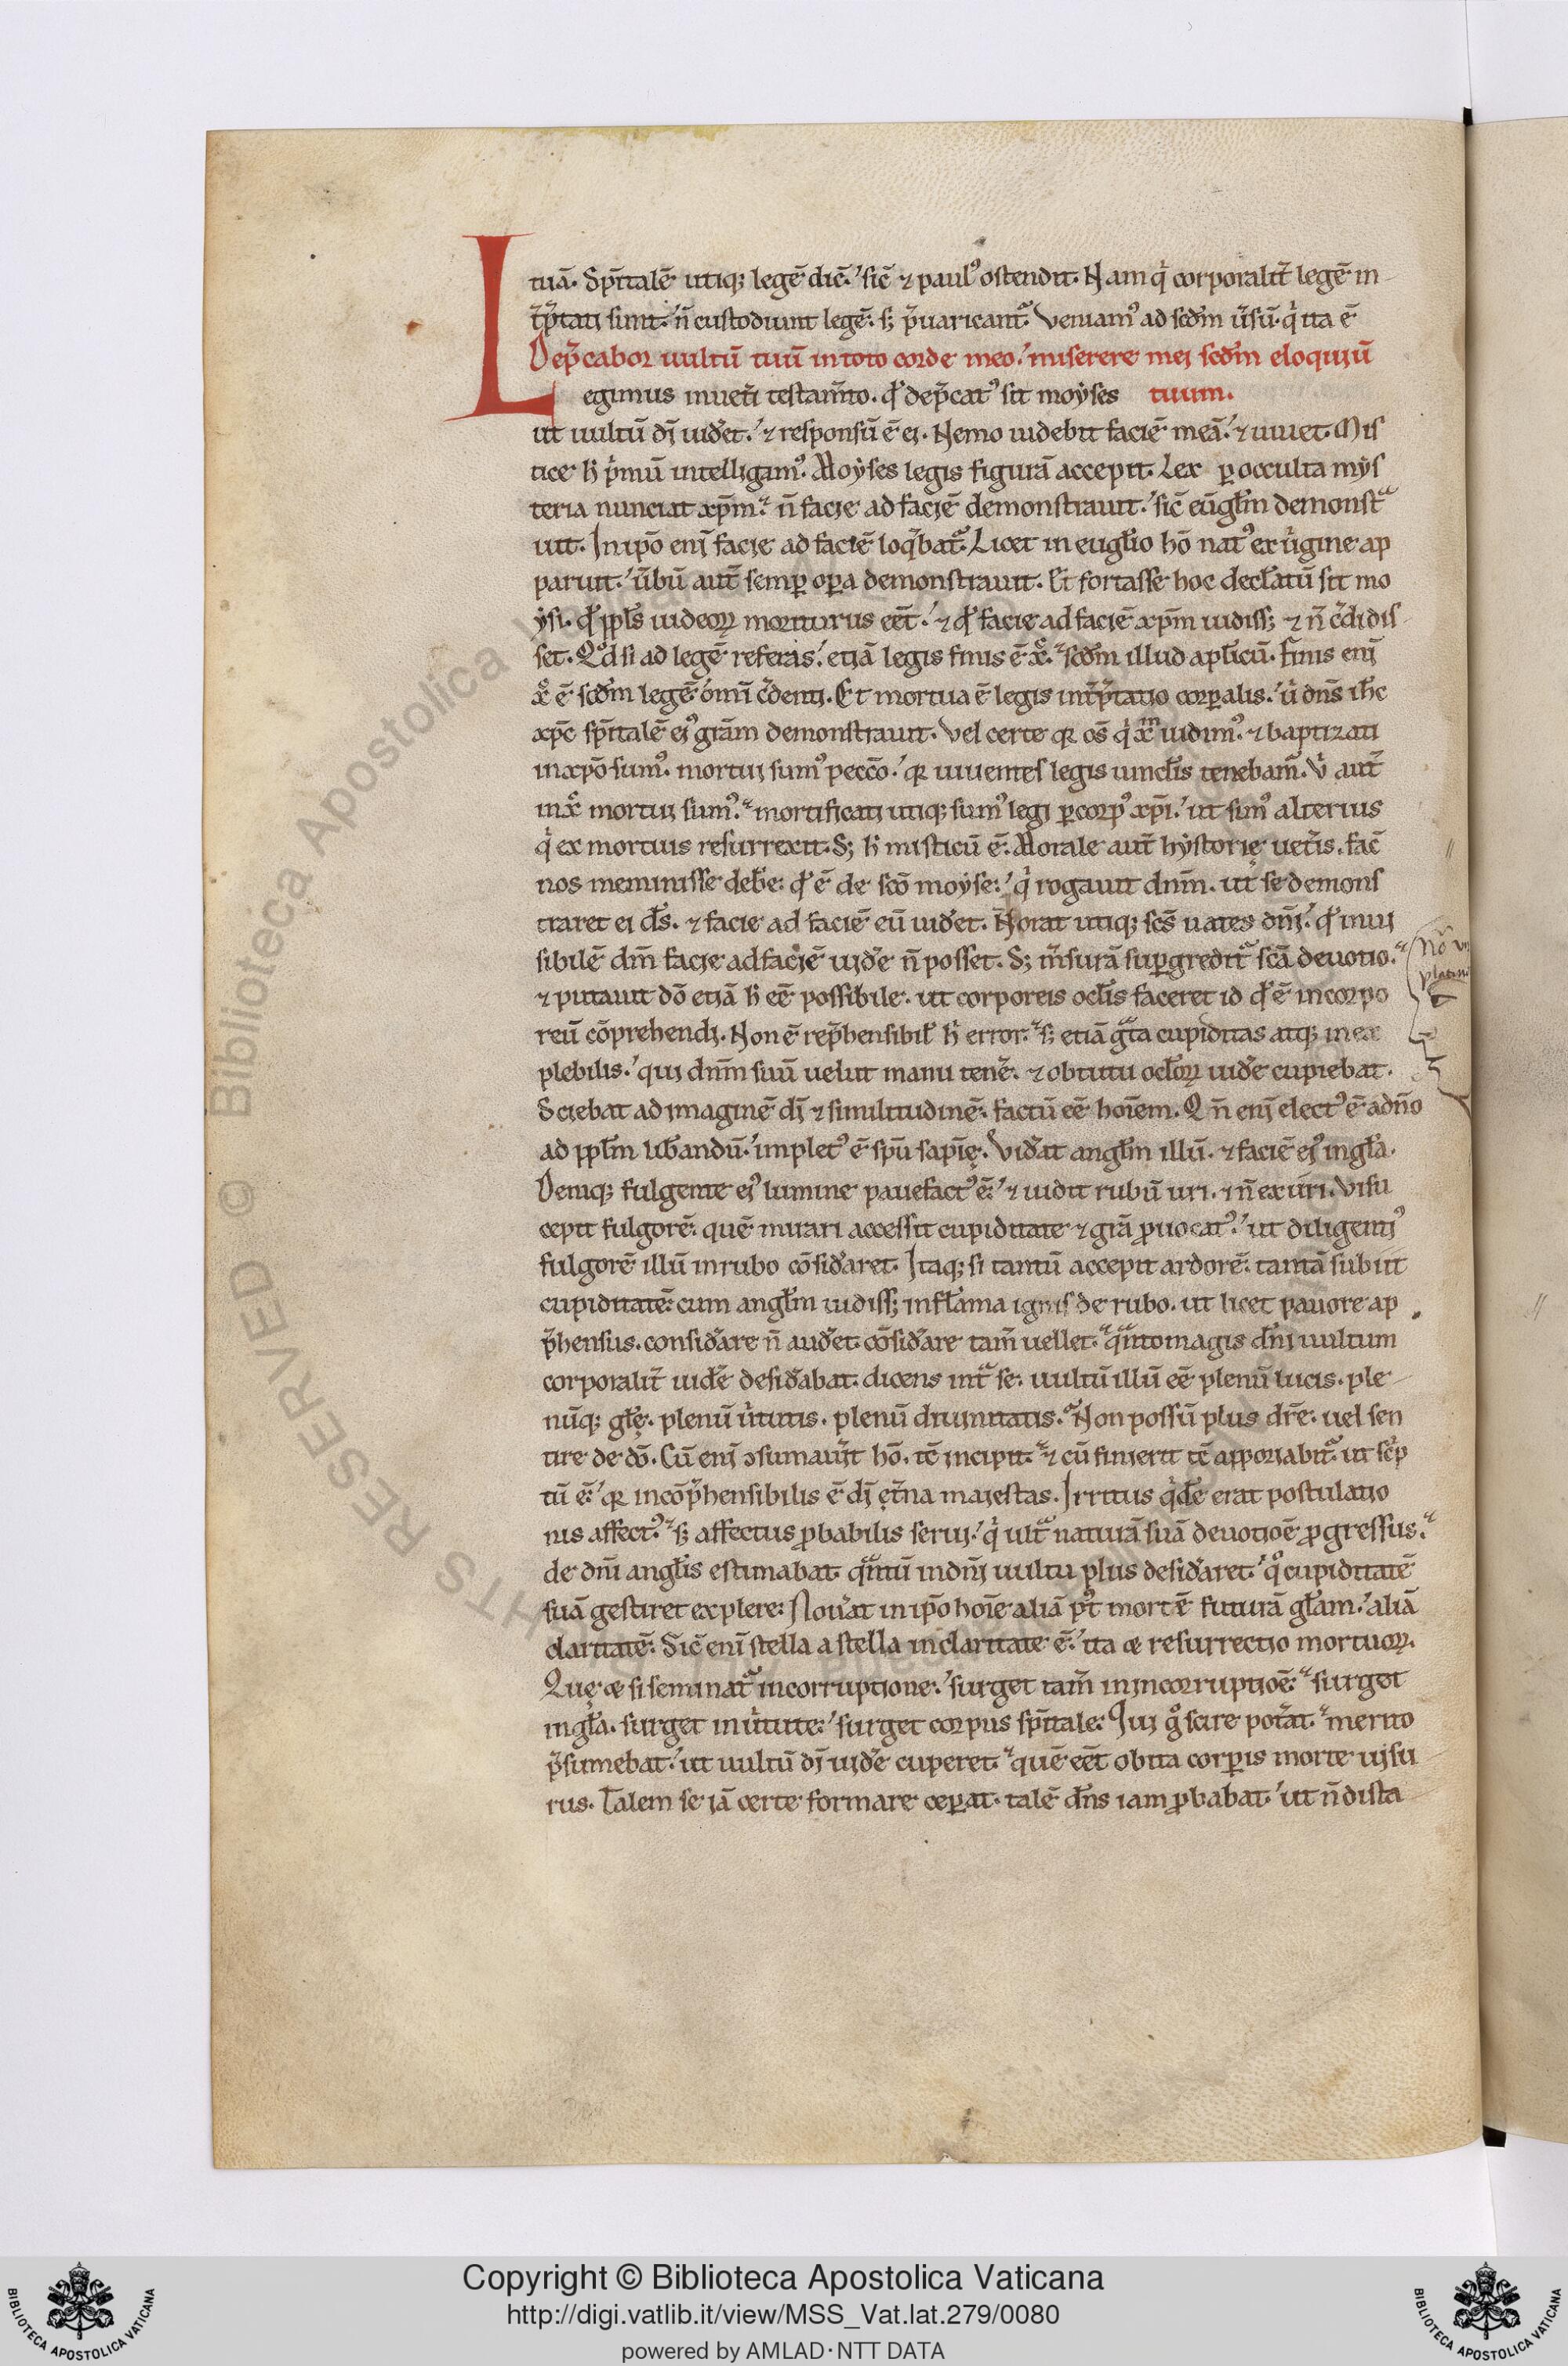 tuā. Spr̄italē utiq; legē dic̄. sic̄ ⁊ paulꝰ ostendit. Nam qͥ corporalit̄ legē in
t̄p̄tati sunt. n̄ custodiunt legē. s; p̄uaricant᷑. Veniamꝰ ad scdm̄ u̅sū. qͥ ita ē
Dep̄cabor uultū tuū in toto corde meo. miserere mei scdm̄ eloquiū
tuum.
Legimus in uet̄i testam̄to. qd̄ dep̄catꝰ sit moẏses
ut uultū dī uid̄et. ⁊ responsū ē ei. Nemo uidebit faciē meā. ⁊ uiuet. Mis
tice h̄ p̄mū intelligamꝰ. Moẏses legis figurā accepit. Lex ꝑ occulta mẏs
teria nunciat xp̄m. n̄ facie ad faciē demonstrauit. sic̄ eu̅gl̄m demonstͣ
uit. In ipō enī facie ad faciē loq̄bat᷑. Licet in euglio hō natꝰ ex uͥgine ap
paruit. u̅bū aut̄ semꝑ oꝑa demonstrauit. Et fortasse hoc decl̄atū sit mo
ẏsi. qd̄ ppl̄s iudeoꝝ moriturus eēt. ⁊ qd̄ facie ad faciē xp̄m uidiss; ⁊ n̄ c̄didis
set. Qd̄ si ad legē referas. etiā legis finis ē xͨ. scdm̄ illud apl̄icū. finis enī
xͨ ē scdm̄ legē om̄i c̄denti. Et mortua ē legis int̄p̄tatio corꝑalis. uͥ dn̄s ih̄c
xp̄c spr̄italē eiꝰ grām demonstrauit. Vel certe qꝛ os̄ qͥ xm̄ uidimꝰ. ⁊ baptizati
in xpō sumꝰ. mortui sumꝰ peccō. qꝛ uiuentes legis uincl̄is tenebam᷑. Vͥ aut̄
in xͦ mortui sumꝰ. mortificati utiq; sumꝰ legi ꝑ corpꝰ xp̄i. ut simꝰ alterius
qͥ ex mortuis resurrexit. S; h̄ misticū ē. Morale aut̄ hẏstorię uet̄is. fac̄
nos meminisse deb̄e. qd̄ ē de scō moẏse. qͥ rogauit dnm̄. ut se demons
traret ei ds̄. ⁊ facie ad faciē eū uid̄et. Norat utiq; scs̄ uates dn̄i. qd̄ inui
sibilē dm̄ facie ad faciē uid̄e n̄ posset. S; m̄surā suꝑgredit᷑ scā deuotio.
⁊ putauit dō etiā h̄ eē possibile. ut corporeis ocl̄is faceret id qd̄ ē incorpo
reū cōprehendi. Non ē rep̄hensibil̄ h̄ error. s; etiā gͣta cupiditas atq; inex
plebilis. qui dnm̄ suū uelut manu tenēr. ⁊ obtutu ocl̄oꝝ uid̄e cupiebat.
Sciebat ad imaginē dī ⁊ similitudinē. factū eē hoīem. Qn̄ enī electꝰ ē a dn̄o
ad ppl̄m lib̄andū. impletꝰ ē spū sapīę. Vid̄at angl̄m illū. ⁊ faciē eiꝰ in gl̄a.
Deniq; fulgente eiꝰ lumine pauefactꝰ ē. ⁊ uidit rubū uri. ⁊ n̄ exuri. Visu
cepit fulgorē. quē mirari accessit cupiditate ⁊ grā ꝓuocatꝰ. ut diligentiꝰ
fulgorē illū in rubo cōsid̄aret. Itaq; si tantū accepit ardorē. tantā subiit
cupiditatē. cum angl̄m uidiss; in fl̄ama ignis de rubo. ut licet pauore ap
p̄hensus. consid̄are n̄ aud̄et. cōsid̄are tam̄ uellet. qͣntomagis dn̄i uultum
corporalit̄ uid̄e desid̄abat. dicens intͣ se. uultū illū eē plenū lucis. ple
nūq; gl̄ę. plenū uͥtutis. plenū diuinitatis. Non possū plus dr̄e. uel sen
tire de dō. Cū enī ↄsumau̅it hō. tc̄ incipit. ⁊ cū finierit tc̄ apporiabit᷑. ut sc̄p
tū ē. qꝛ incōp̄hensibilis ē dī ęt̄na maiestas. Irritus qͥdē erat postulatio
nis affectꝰ. s; affectus ꝓbabilis serui. qͥ ultͣ naturā suā deuotiōe ꝓgressus.
de dn̄i angl̄is estimabat. qͣntū in dn̄i uultu plus desid̄aret. qͦ cupiditatē
suā gestiret explere. Nou̅at in ipō hoīe aliā pꝰt mortē futurā gl̄am. aliā
claritatē. Sic̄ enī stella a stella in claritate ē. ita & resurrectio mortuoꝝ.
Quę & si seminat᷑ in corruptione. surget tam̄ in incorruptiōe. surget
in gl̄a. surget in uͥtute. surget corpus spr̄itale. Qui gͦ scire pot̄at. merito
p̄sumebat. ut uultū dī uid̄e cuperet. quē eēt obita corꝑis morte uisu
rus. Talem se iā certe formare ceꝑat. talē dn̄s iam ꝓbabat. ut n̄ dista
Copyright © Biblioteca Apostolica Vaticana
http://digi.vatlib.it/view/MSS_Vat.lat.279/0080
powered by AMLAD·NTT DATA
BIBLIOTECA APOSTOLICA VATICANA
BIBLIOTECA APOSTOLICA VATICANA